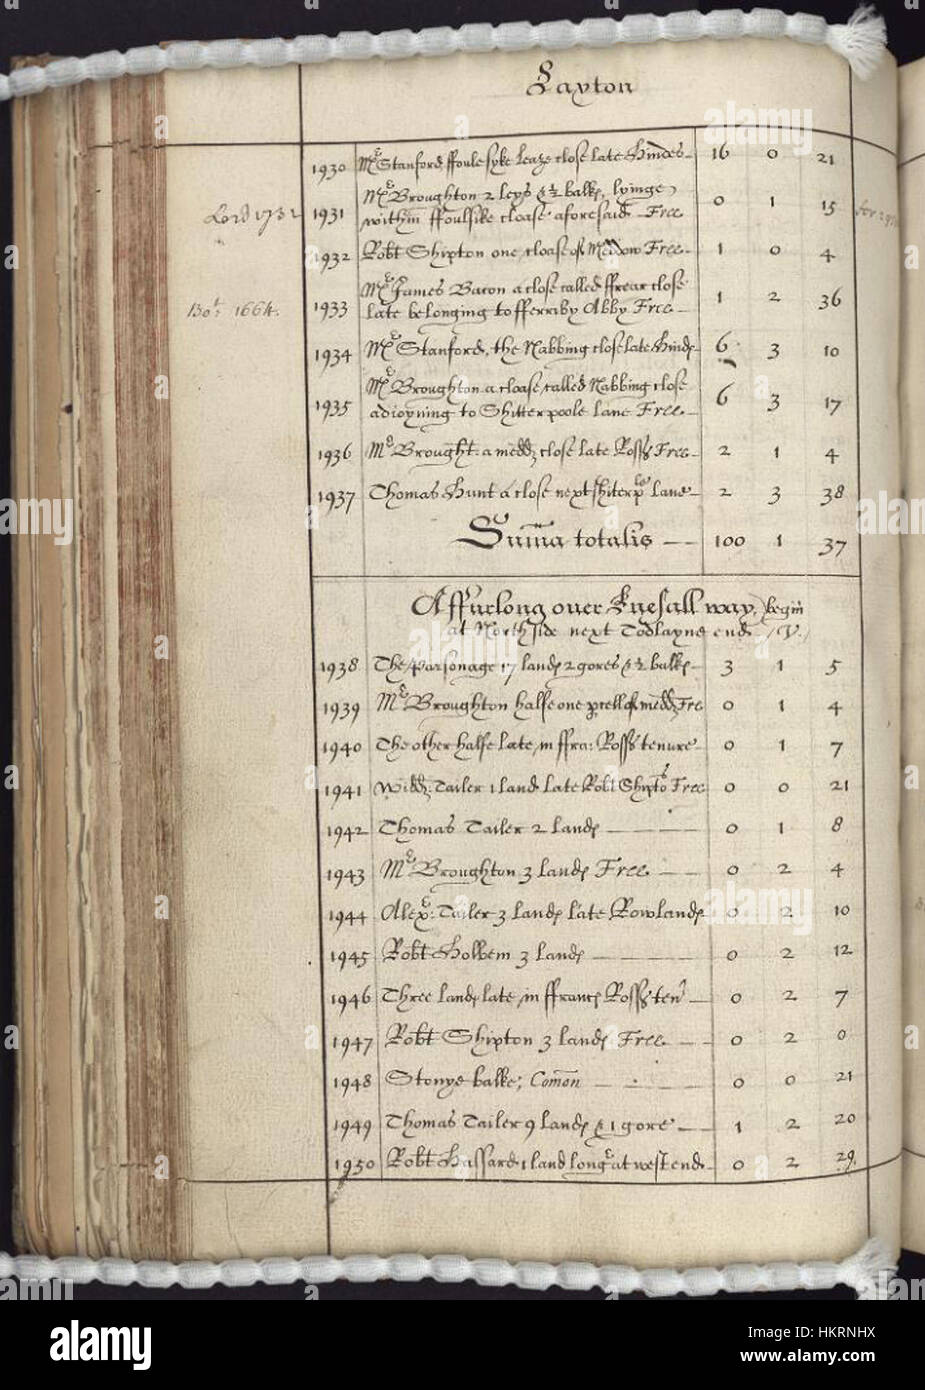 Laxton
1930 Mr Stanford ffoulesyke Leaze close late Hindes 16 0 21
Mr Broughton 2 leys & ½ balke, lyinge
Lord 1732 1931 within ffoulsike cloase aforesaid Free 0 1 15
1932 Robt Shipton one cloase of Meddow Free 1 0 4
Mr James Bacon a close called ffrear close
Bot 1664. 1933 late belonging to fferriby Abby Free 1 2 36
1934 Mr Stanford, the Nabbing close late Hind 6 3 10
Mr Broughton a cloase called Nabbing close
1935 adioyning to Shitterpoole Lane Free 6 3 17
1936 Mr Brought: a medd close late Ross Free 2 1 4
1937 Thomas Hunt a close next Shiterp le lane 2 3 38
Summa totalis 100 1 37
A ffurlong ouer Knesall way, begin
at North side next Todlayne end
1938 The parsonage 17 land 2 gores & ½ balk 3 1 5
1939 Mr Broughton halfe one prell of medd Fre 0 1 4
1940 The other halfe late in ffra: Ross tenure 0 1 7
1941 Widd: Tailer 1 land late Robt Shiptōs Free 0 0 21
1942 Thomas Tailer 2 land 0 1 8
1943 Mr Broughton 3 land Free 0 2 4
1944 Alexr: Tailer 3 land late Rowland 0 2 10
1945 Robt Holbem 3 land 0 2 12
1946 Three land late in ffranc Ross ten 0 2 7
1947 Robt Shipton 3 land Free 0 2 0
1948 Stonye balke; Comōn 0 0 21
1949 Thomas Tailer 9 land & 1 gore 1 2 20
1950 Robt Hassard 1 land longr at west end 0 2 29.
alamy
Image ID: HKRNHX
www.alamy.com